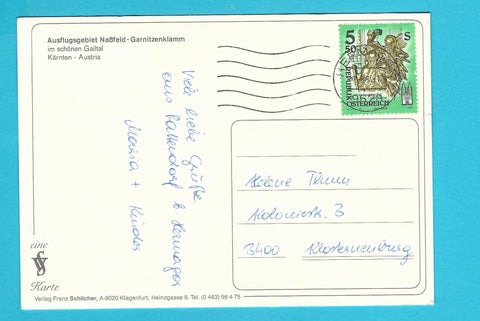 Ausflugsgebiet Naßfeld - Garnitzenklamm
im schönen Gailtal
Kärnten - Austria
Viele liebe Grüße
aus Rattendorf b. Hermagor
Maria + Kinder
5 50 S
REPUBLIK
ÖSTERREICH
Helene Thum
3
3400 Klosterneuburg
eine
Karte
Verlag Franz Schilcher, A-9020 Klagenfurt, Heinzgasse 8, Tel. (0 463) 56 4 75